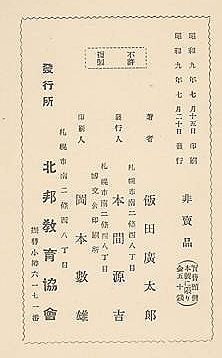 昭和九年七月十五日印刷
昭和九年七月二十日發行
非賣品
不許
複製
著者 飯田廣太郎
札幌市南二條西八丁目
發行人 本間源吉
札幌市南二條西八丁目
印刷人 岡本數雄
札幌市南二條西八丁目
發行所 北邦教育協會
振替小樽六一七一番